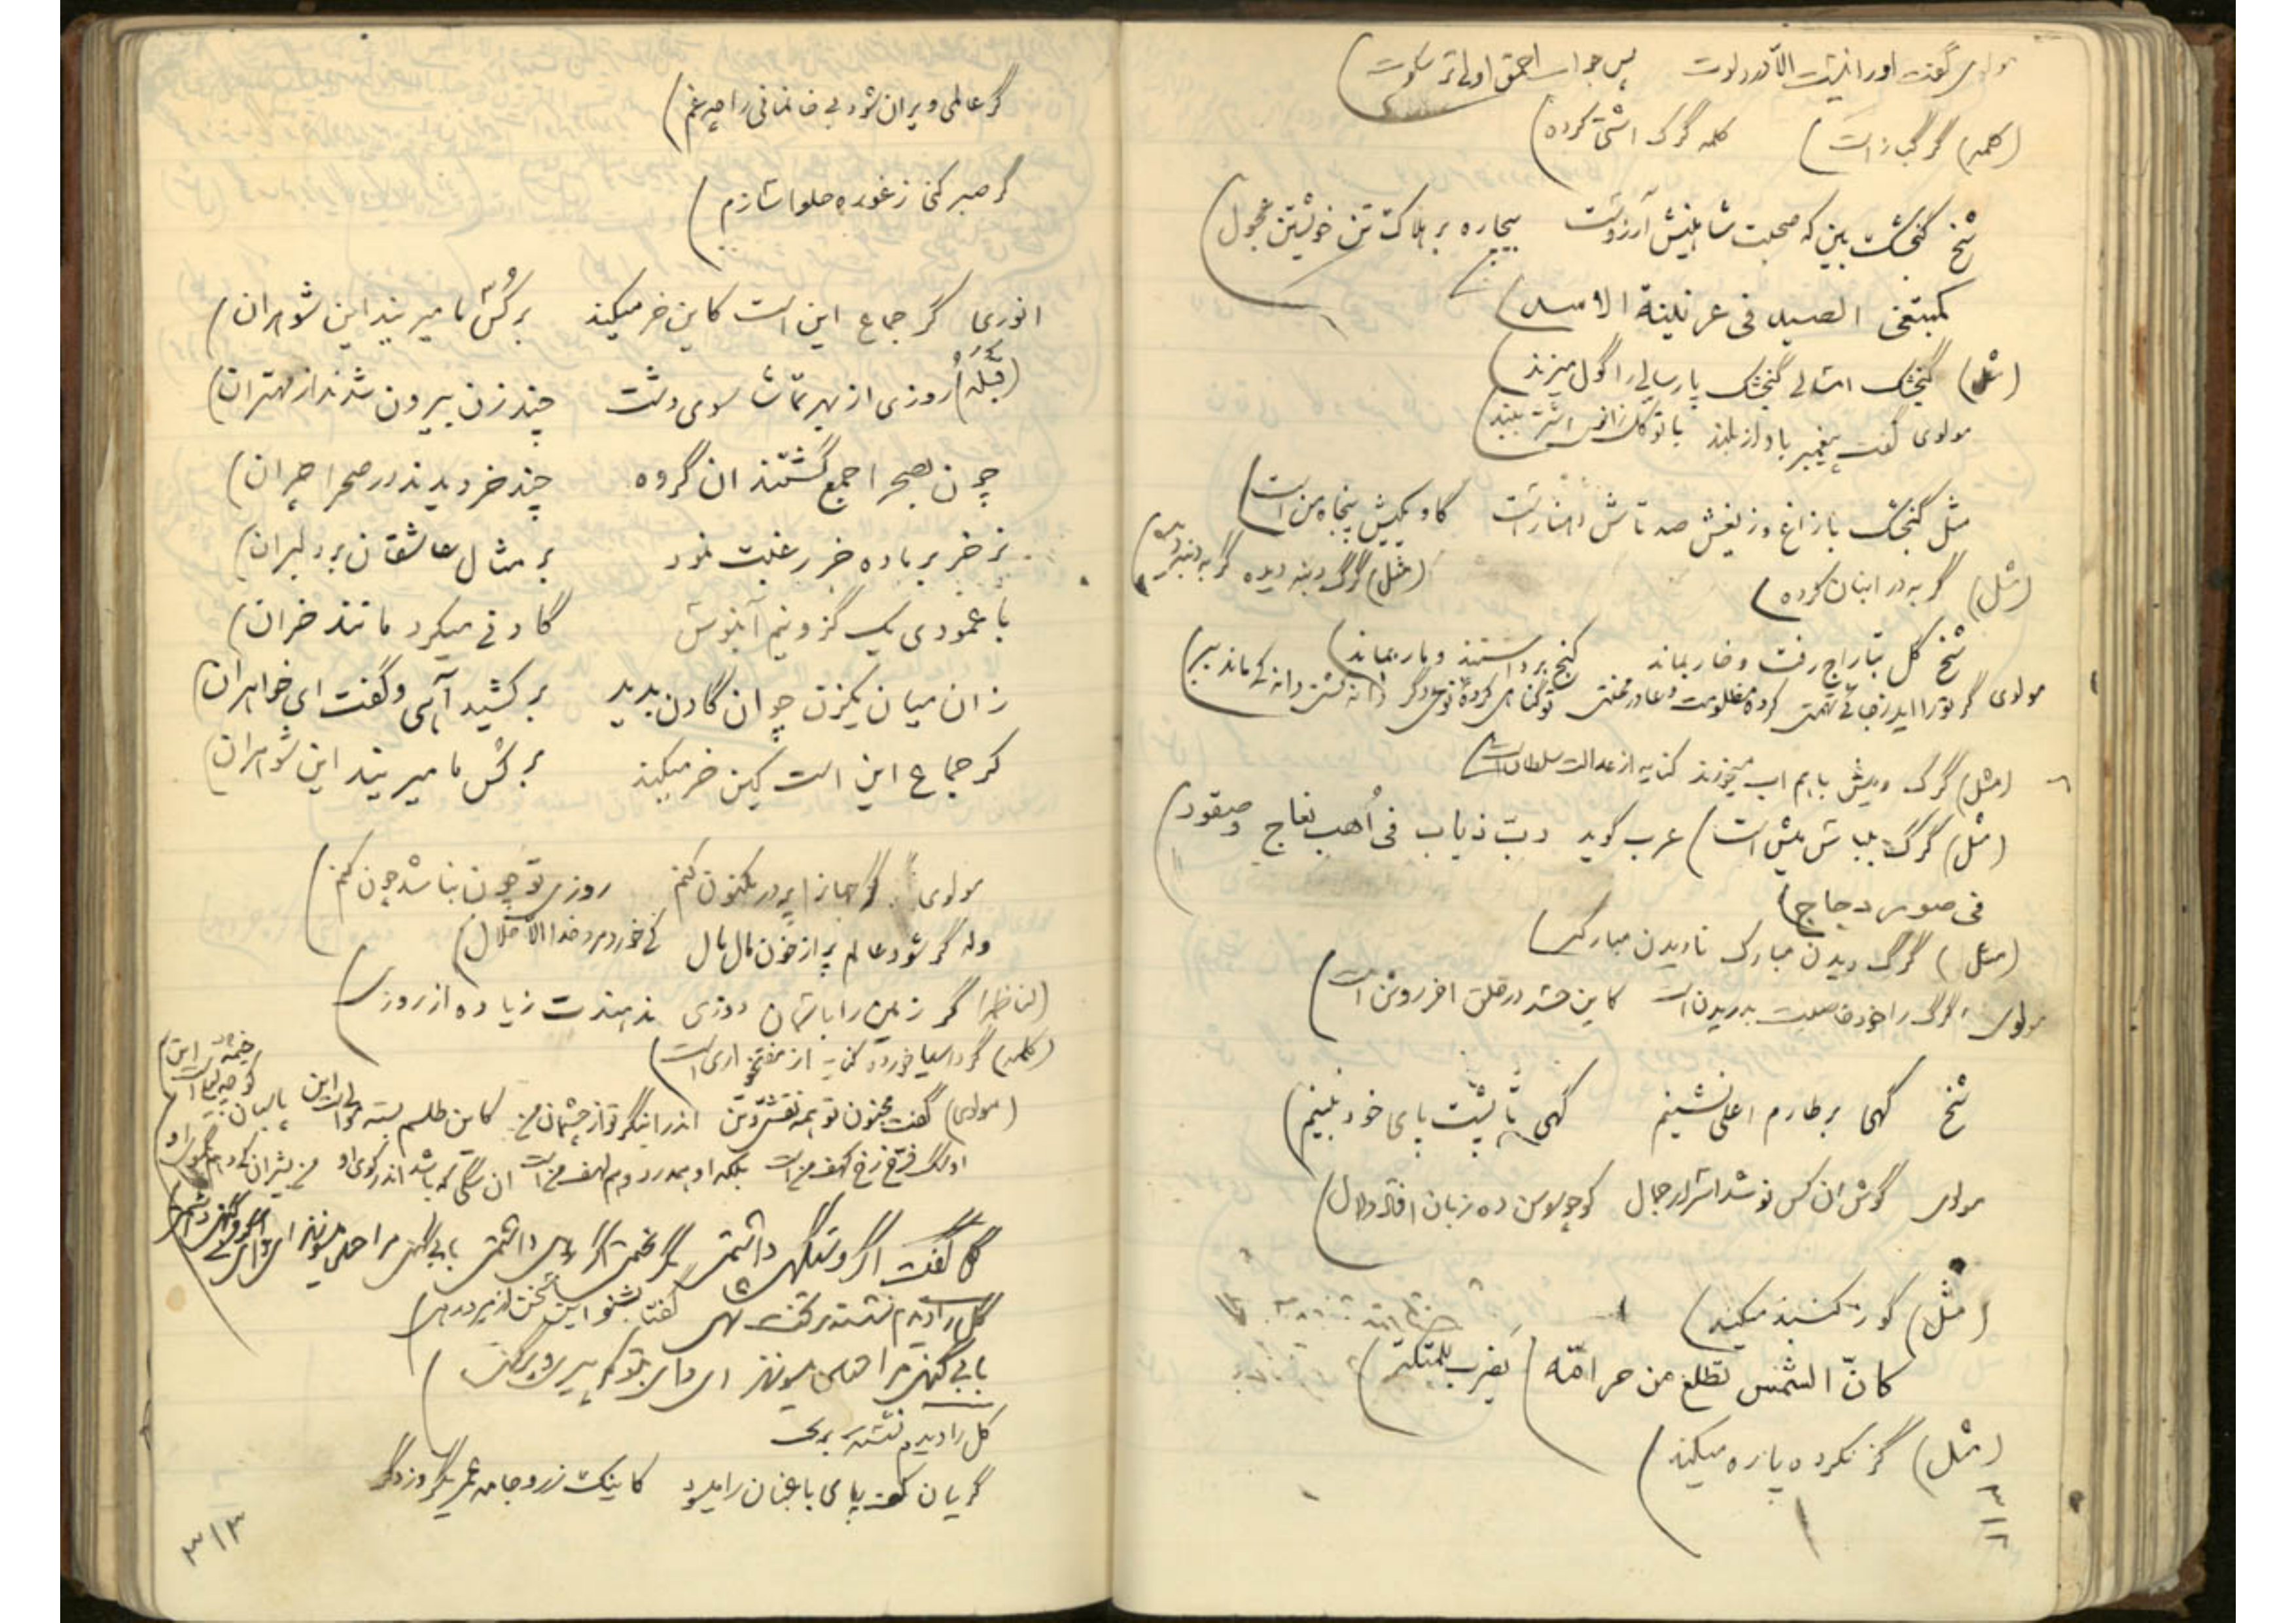 مولوی گفت اورا نیست الا درد لوت    پس جواب احمق اولیتر سکوت
(کلمه) گرگ باز است)    کلمه گرگ آشتی کرده)
شیخ گنجشک بین که صحبت شاهینش آرزوست    بیچاره بر هلاک تن خویشتن عجول
کمبتغی الصید فی عرینة الاسد)
(مثل) گنجشک امسالی گنجشک پارسالی را گول میزند)
مولوی گفت پیغمبر باواز بلند    با توکل زانوی اشتر ببند)
مثل گنجشک بازاغ و زیغش صد تاش دینار است    گاو یکیش پنجاه من است)
(مثل) گربه در انبان کرده)    (مثل) گرگ دنبه دیده گربه دنبه دیده)
شیخ گل بتاراج رفت و خار بماند    گنج برداشتند و مار بماند)
مولوی گر تو را اید زجائی تهمتی    کرده مظلومت دعا در محنتی    تو گناهی کرده نوع دگر    دانه کشتی دانه کی ماند ببر)
(مثل) گرگ و میش باهم اب میخورند کنایه از عدالت سلطان است)
(مثل) گرگ بلباس میش است) عرب گوید ربّ ذیاب فی أهب نعاج و صقود
فی صور دجاج)
(مثل) گرگ دیدن مبارک نادیدن مبارکتر)
مولوی گرگ را خود خاصیت بدریدن است    کاین حسد در خلق اخر روشن است)
شیخ گهی بر طارم اعلی نشینم    گهی تا پشت پای خود نبینم)
مولوی گوش ان کس نوشد اسرار جلال    کو چو سوسن ده زبان افتاد و لال)
(مثل) گوز گنبد میکند)
کانّ الشمس تطلع من حرامّه) یضرب للمتکبّر)
(مثل) گز نکرده پاره میکند)
گر عالمی ویران شود بی خانمانی را چه غم)
گر صبر کنی ز غوره حلوا سازم)
انوری گر جماع این است کاین خر میکند    بر کُس ما میریند این شوهران)
(قبله) روزی از بهر تماشا سوی دشت    چند زن بیرون شدند از مهتران)
چون بصحرا جمع گشتند ان گروه    چند خر دیدند در صحرا چران)
نر خر بر ماده خر رغبت نمود    بر مثال عاشقان بر دلبران)
با عمودی یک گز و نیم آبنوش    گادنی میکرد مانند خران)
زان میان یکزن چو ان گادن بدید    بر کشید آهی و گفت ای خواهران)
گر جماع این است کین خر میکند    بر کس ما میریند این شوهران)
مولوی گر جهان را پر در مکنون کنم    روزی تو چون نباشد چون کنم)
وله گر شود عالم پر از خون مال مال    کی خورد مرد خدا الا حلال)
(لناظم) گر زمین را بآسمان دوزی    ندهندت زیاده از روزی)
(کلمه) گرد اسیا خورده کنایه از مفتخواری است)
(مولوی) گفت مجنون تو همه نقشی و تن    اندرا بنگر تو از چشمان من    کاین طلسم بسته مولی است این    پاسبان کوچه لیلی است این)
او سگ فرخ رخ کهف من است    بلکه او همدرد و هم لهف من است    ان سگی که باشد اندر کوی او    من بشیران کی دهم یکموی او
گل گفت اگر دستگهی داشتمی    بگریختمی اگر رهی داشتمی    با بی گنهی مرا همی سوزند    ای وای اگر گنهی داشتمی)
گل را دیدم نشسته بر تخت شهی    گفتا بشنو این سخن از مرد رهی
با بی گنهی مرا همی سوزند    ای وای بتو که پیری و پر گنهی)
گل را دیدم نشسته
گریان کف پای باغبان را میسود    کاینک زر و جامه عمر یکروز دگر
۳۱۳